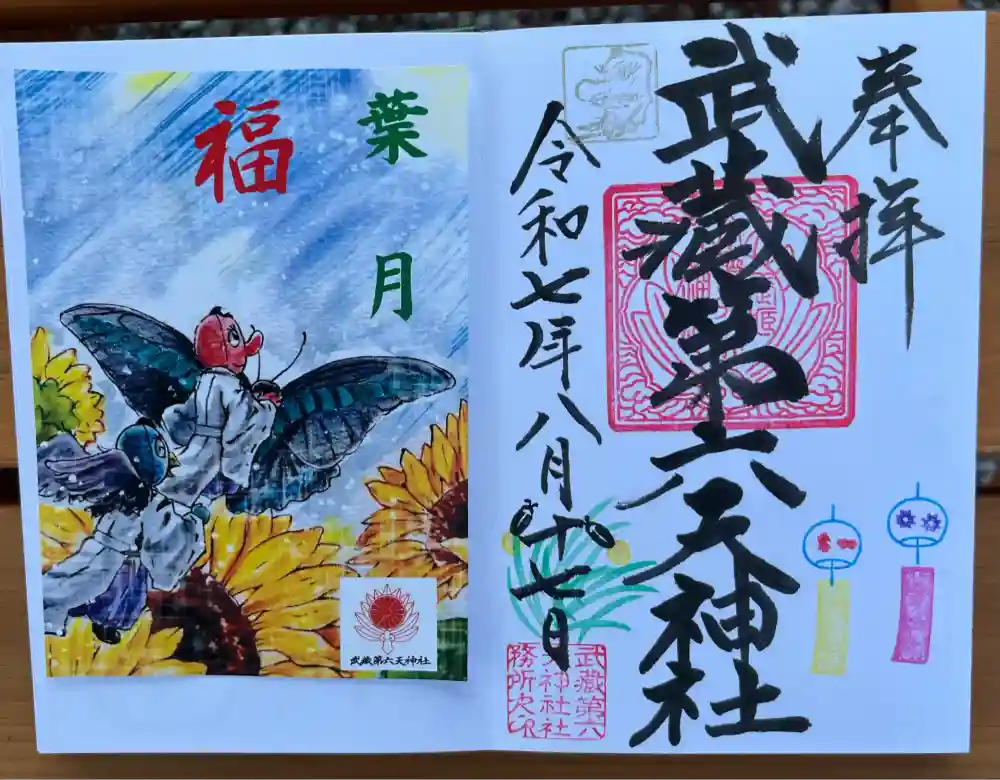 奉拝
武蔵第六天神社
令和七年八月十七日
武蔵第六
天神社社
務所之印
葉月
福
武蔵第六天神社